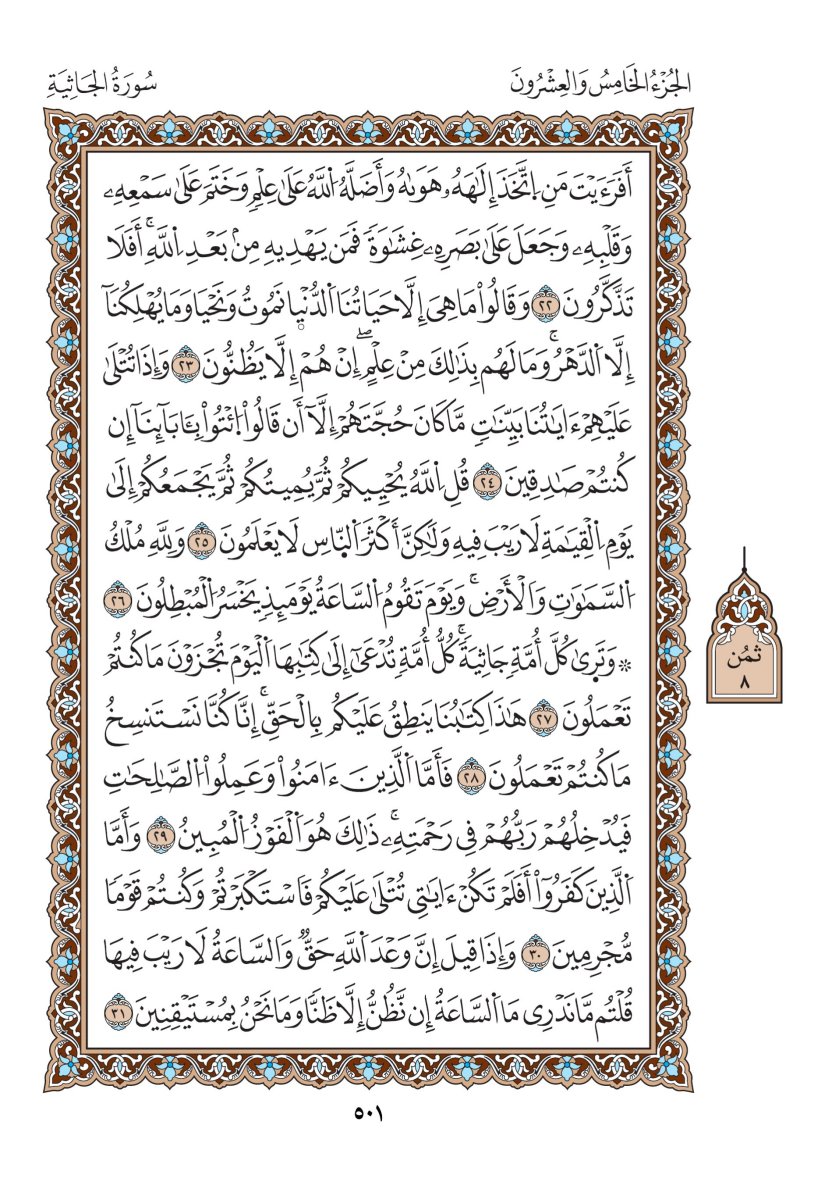 الجُزْءُ الخَامِسُ وَالعِشْرُونَ
سُورَةُ الجَاثِيَةِ
أَفَرَءَيْتَ مَنِ اِتَّخَذَ إِلَٰهَهُۥ هَوَىٰهُ وَأَضَلَّهُ اُللَّهُ عَلَىٰ عِلْمٖ وَخَتَمَ عَلَىٰ سَمْعِهِۦ
وَقَلْبِهِۦ وَجَعَلَ عَلَىٰ بَصَرِهِۦ غِشَٰوَةٗ فَمَن يَهْدِيهِ مِنۢ بَعْدِ اِللَّهِۚ أَفَلَا
تَذَّكَّرُونَ ٢٢ وَقَالُواْ مَا هِيَ إِلَّا حَيَاتُنَا اَلدُّنْيَا نَمُوتُ وَنَحْيَا وَمَا يُهْلِكُنَآ
إِلَّا اَلدَّهْرُۚ وَمَا لَهُم بِذَٰلِكَ مِنْ عِلْمٍۖ إِنْ هُمْ إِلَّا يَظُنُّونَ ٢٣ وَإِذَا تُتْلَىٰ
عَلَيْهِمْ ءَايَٰتُنَا بَيِّنَٰتٖ مَّا كَانَ حُجَّتَهُمْ إِلَّآ أَن قَالُواْ اُئْتُواْ بِـَٔابَآئِنَآ إِن
كُنتُمْ صَٰدِقِينَ ٢٤ قُلِ اِللَّهُ يُحْيِيكُمْ ثُمَّ يُمِيتُكُمْ ثُمَّ يَجْمَعُكُمْ إِلَىٰ
يَوْمِ اِلْقِيَٰمَةِ لَا رَيْبَ فِيهِ وَلَٰكِنَّ أَكْثَرَ اَلنَّاسِ لَا يَعْلَمُونَ ٢٥ وَلِلَّهِ مُلْكُ
اُلسَّمَٰوَٰتِ وَالْأَرْضِۚ وَيَوْمَ تَقُومُ اُلسَّاعَةُ يَوْمَئِذٖ يَخْسَرُ اُلْمُبْطِلُونَ ٢٦
۞ وَتَرَىٰ كُلَّ أُمَّةٖ جَاثِيَةٗۚ كُلُّ أُمَّةٖ تُدْعَىٰٓ إِلَىٰ كِتَٰبِهَا اَلْيَوْمَ تُجْزَوْنَ مَا كُنتُمْ
تَعْمَلُونَ ٢٧ هَٰذَا كِتَٰبُنَا يَنطِقُ عَلَيْكُم بِالْحَقِّۚ إِنَّا كُنَّا نَسْتَنسِخُ
مَا كُنتُمْ تَعْمَلُونَ ٢٨ فَأَمَّا اَلَّذِينَ ءَامَنُواْ وَعَمِلُواْ اُلصَّٰلِحَٰتِ
فَيُدْخِلُهُمْ رَبُّهُمْ فِي رَحْمَتِهِۦۚ ذَٰلِكَ هُوَ اَلْفَوْزُ اُلْمُبِينُ ٢٩ وَأَمَّا
اَلَّذِينَ كَفَرُوٓاْ أَفَلَمْ تَكُنْ ءَايَٰتِي تُتْلَىٰ عَلَيْكُمْ فَاسْتَكْبَرْتُمْ وَكُنتُمْ قَوْمٗا
مُّجْرِمِينَ ٣٠ وَإِذَا قِيلَ إِنَّ وَعْدَ اَللَّهِ حَقّٞ وَالسَّاعَةُ لَا رَيْبَ فِيهَا
قُلْتُم مَّا نَدْرِي مَا اَلسَّاعَةُ إِن نَّظُنُّ إِلَّا ظَنّٗا وَمَا نَحْنُ بِمُسْتَيْقِنِينَ ٣١
ثُمُن
٨
٥٠١